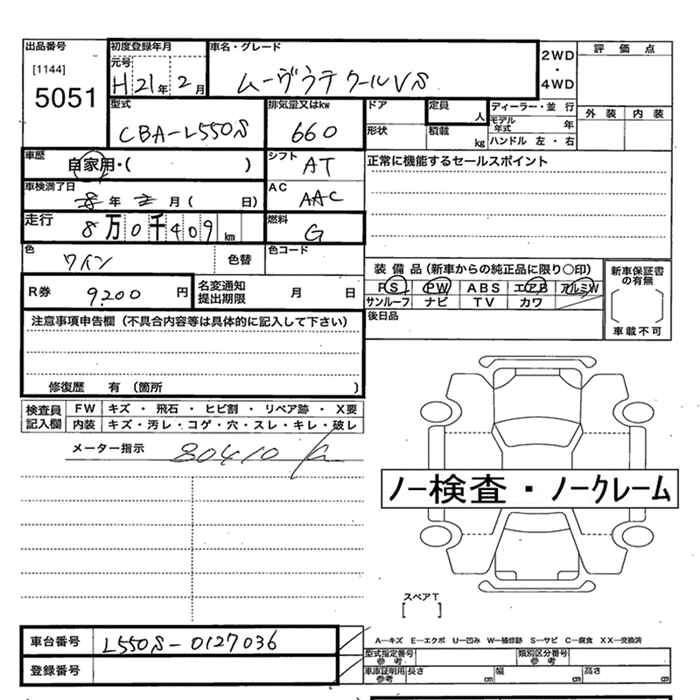 出品番号
[1144]
5051
初度登録年月
元号
H21年2月
車名・グレード
ムーヴラテ クールVS
2WD
・
4WD
評価点
外装 内装
型式
CBA-L550S
排気量又はkw
660
ドア
形状
定員
人
積載
kg
ディーラー・並行
モデル年式 年
ハンドル 左・右
車歴
自家用・( )
シフト
AT
正常に機能するセールスポイント
車検満了日
年 月 ( 日)
AC
AAC
走行
8万0千409km
燃料
G
色
ワイン
色替
色コード
R券 9200円
名変通知
提出期限
月 日
装備品 (新車からの純正品に限り〇印)
PS PW ABS エアB アルミW
サンルーフ ナビ TV カワ
新車保証書
の有無
車載不可
後日品
注意事項申告欄 (不具合内容等は具体的に記入して下さい)
修復歴 有 (箇所 )
検査員
記入欄
FW キズ・飛石・ヒビ割・リペア跡・X要
内装 キズ・汚レ・コゲ・穴・スレ・キレ・破レ
メーター指示 80410
ノー検査・ノークレーム
スペアT
[ ]
車台番号 L550S-0127036
登録番号
A―キズ E―エクボ U―凹み W―補修跡 S―サビ C―腐食 XX―交換済
型式指定番号
参考
類別区分番号
参考
車庫証明用
参考
長さ cm 幅 cm 高さ cm